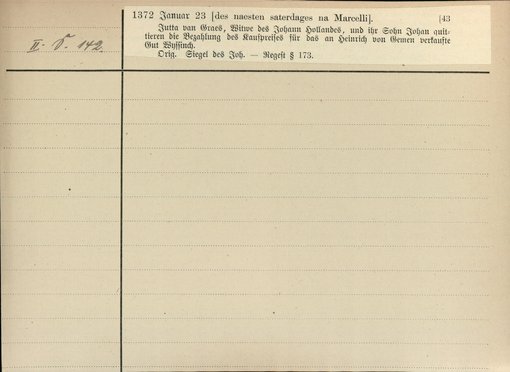 1372 Januar 23 [des naesten saterdages na Marcelli]. [43
Jutta van Graes, Witwe des Johann Hollandes, und ihr Sohn Johan quit-
tieren die Bezahlung des Kaufpreises für das an Heinrich von Gemen verkaufte
Gut Wyssinch.
Orig. Siegel des Joh. — Regest § 173.
II. S. 142.